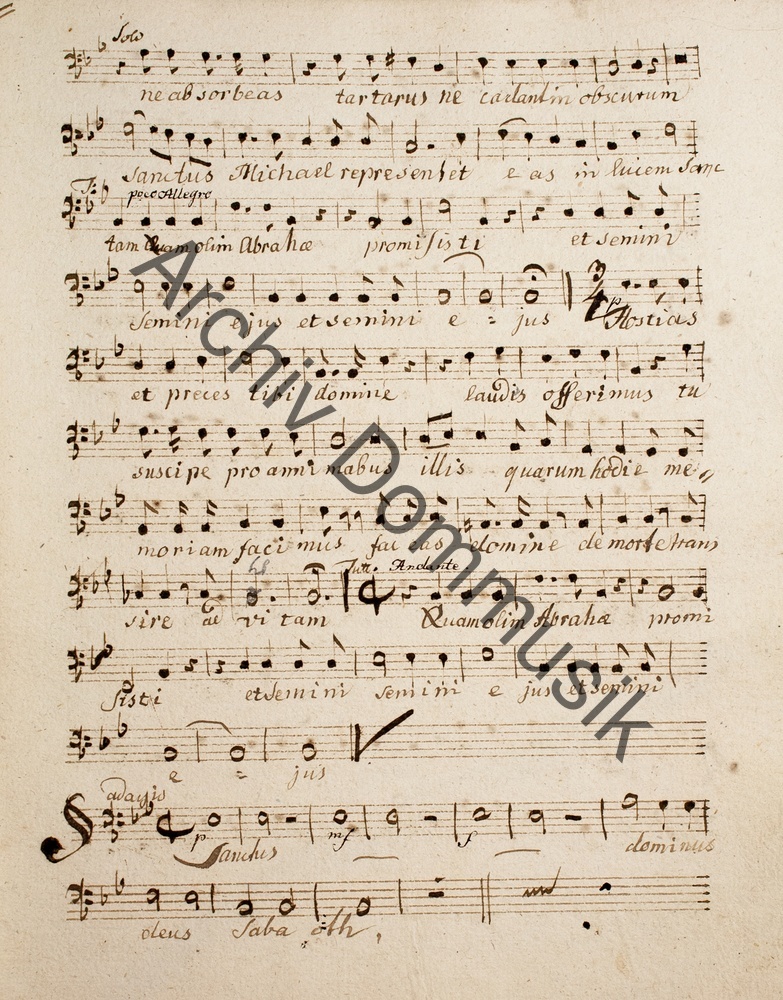 Solo
ne absorbeas tartarus ne cadant in obscurum
sanctus Michael represen tet e as in lucem sanc
T:
poco Allegro
tam Quam olim Abrahæ promisisti et semini
semini ejus et semini e = jus
p Hostias
et preces tibi domine laudis offerimus tu
suscipe pro animabus illis quarum hodie me
moriam facimus fac eas domine de morte trans
Tutti Andante
sire ad vitam Quam olim Abrahæ promi
sisti et semini semini e jus et semini
e = jus
adagio
p mf f
Sanctus dominus
deus Saba oth,
Archiv Dommusik